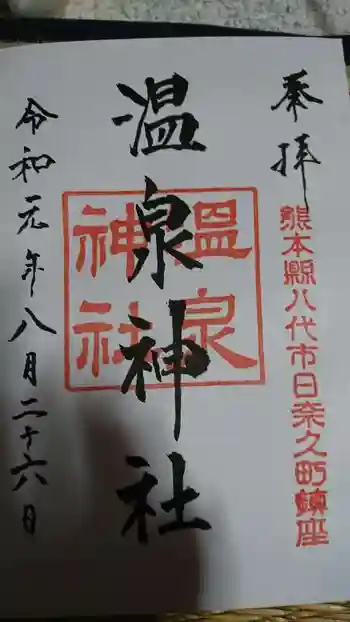 奉拝
熊本縣八代市日奈久町鎮座
温泉神社
温泉
神社
令和元年八月二十六日